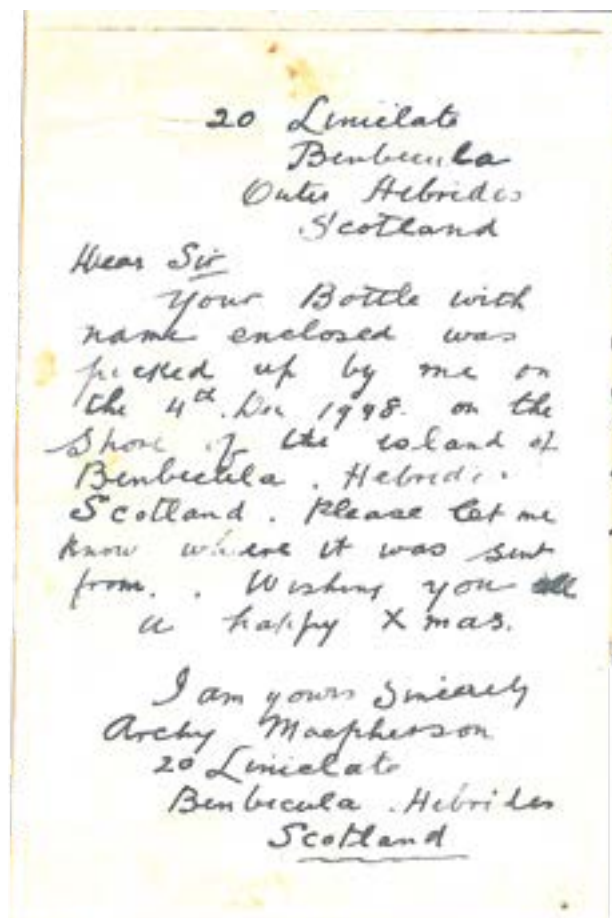 20 Liniclate
Benbecula
Outer Hebrides
Scotland
Dear Sir
Your Bottle with
name enclosed was
picked up by me on
the 4th. Dec 1948. on the
Shore of the island of
Benbecula. Hebrides.
Scotland. Please let me
know where it was sent
from. . Wishing you all
a happy Xmas.
I am yours Sincerely
Archy Macpherson
20 Liniclate
Benbecula. Hebrides
Scotland